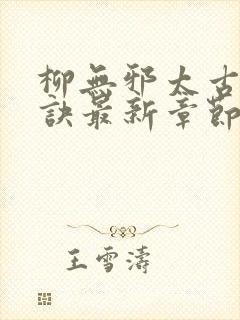 柳無邪太古
訣最新章節
王雪濤